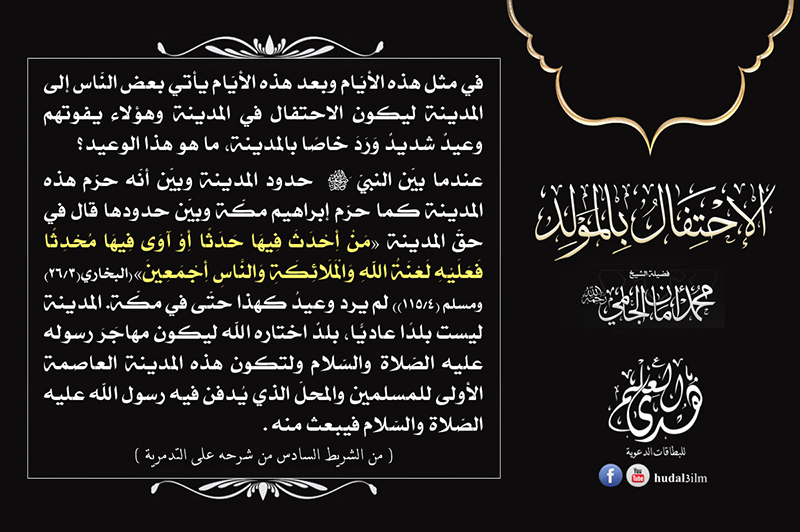 الاحْتِفَالُ بِالمَوْلِدِ
فضيلة الشيخ
محمد أمان الجامي رحمه الله
هدى العلم
للبطاقات الدعوية
hudal3ilm
في مثل هذه الأيَام وبعد هذه الأيَام يأتي بعض النَاس إلى
المدينة ليكون الاحتفال في المدينة وهؤلاء يفوتهم
وعيدٌ شديدٌ وَرَدَ خاصًا بالمدينة، ما هو هذا الوعيد؟
عندما بيَن النبيَ ﷺ حدود المدينة وبيَن أنَه حرَم هذه
المدينة كما حرَم إبراهيم مكَة وبيَن حدودها قال في
حقَ المدينة «مَنْ أَحْدَثَ فِيهَا حَدَثًا أَوْ آوَى فِيهَا مُحْدِثًا
فَعَلَيْهِ لَعْنَةُ اللَهِ وَالْمَلَائِكَةِ وَالنَّاسِ أَجْمَعِينَ» (البخاري(٢٦/٣)
ومسلم (١١٥/٤)) لم يرد وعيدٌ كهذا حتَى في مكَة. المدينة
ليست بلدًا عاديًا، بلدٌ اختاره اللَه ليكون مهاجَرَ رسوله
عليه الصَلاة والسَلام ولتكون هذه المدينة العاصمة
الأولى للمسلمين والمحلَ الذي يُدفن فيه رسول اللَه عليه
الصَلاة والسَلام فيبعث منه .
( من الشريط السادس من شرحه على التَدمرية )